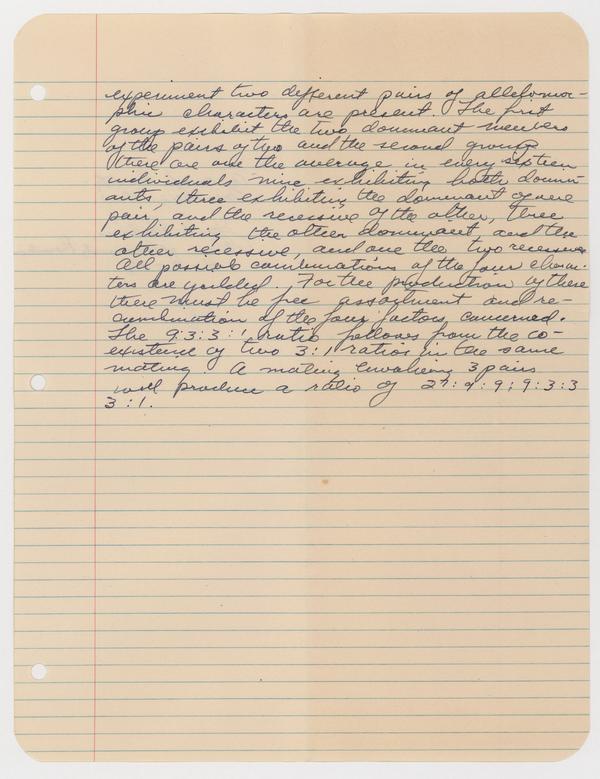 experiment two different pairs of allelomor-
phic characters are present. The first
group exhibit the two dominant members
of the pairs of two and the second group
there are on the average in every sixteen
individuals nine exhibiting both domin-
ants, three exhibiting the dominant of one
pair, and the recessive of the other, three
exhibiting the other dominant and the
other recessive, and one the two recessives
All possible combinations of the four charac-
ters are yielded. For the production of these
there must be free assortment and re-
combination of the four factors concerned.
The 9:3:3:1 ratio follows from the co-
existence of two 3:1 ratios in the same
mating. A mating involving 3 pairs
will produce a ratio of 27:9:9:9:3:3
3:1.